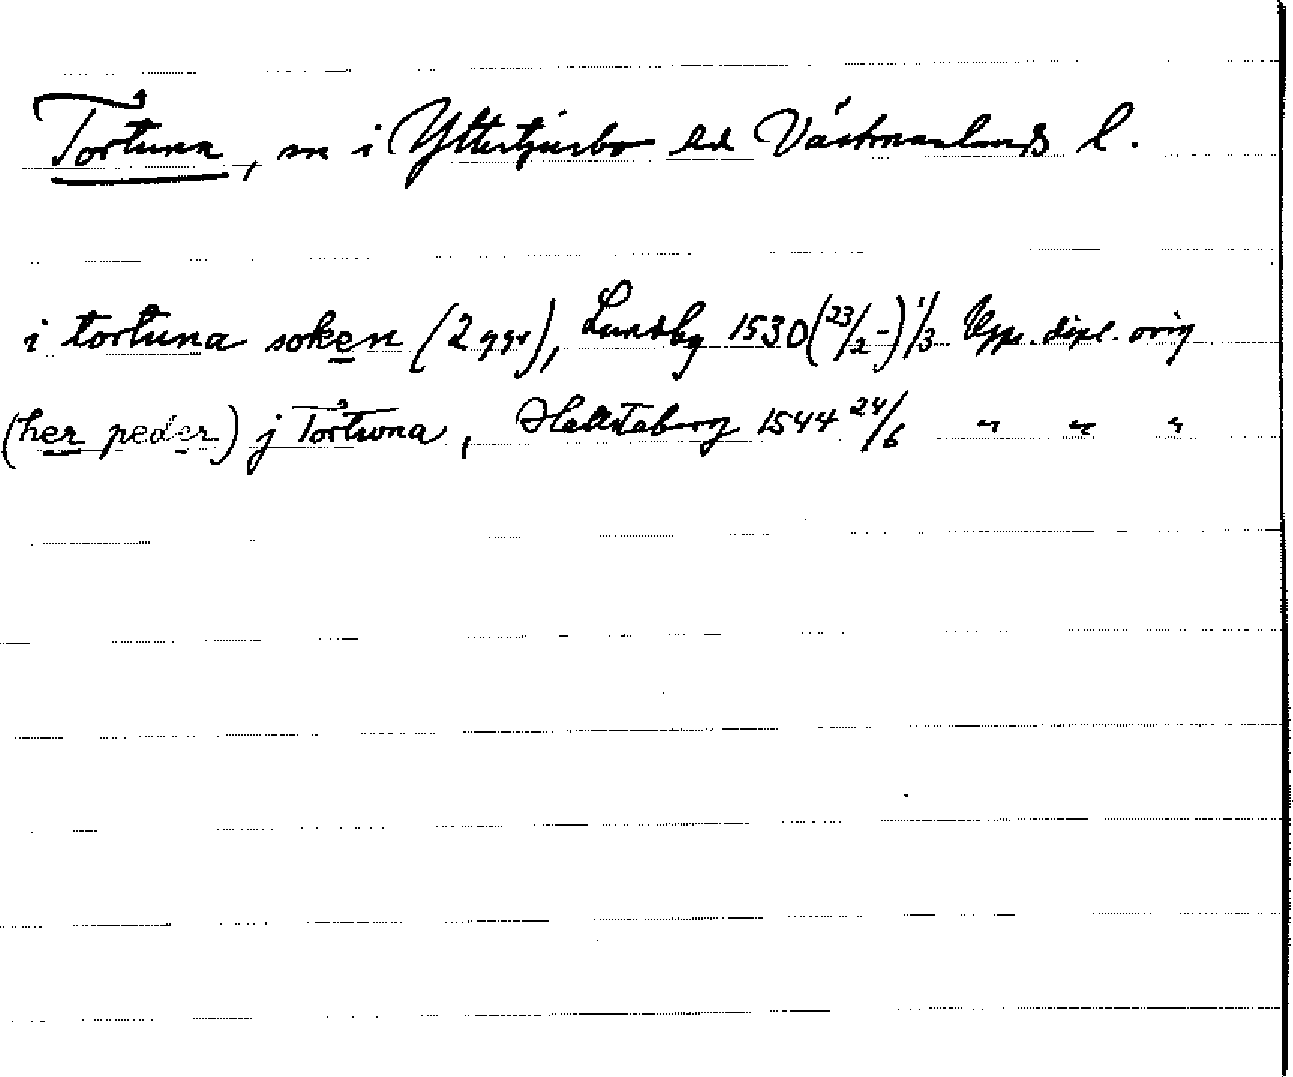 Tortuna, sn i Yttertjurbo hd Västmanlands l.
i tortuna soken (2 ggr), Lundby 1530 (23/2 -) 1/3 Upps. dipl. orig
(her peder) j Tortwna, Hallstaberg 1544 24/6 " " "